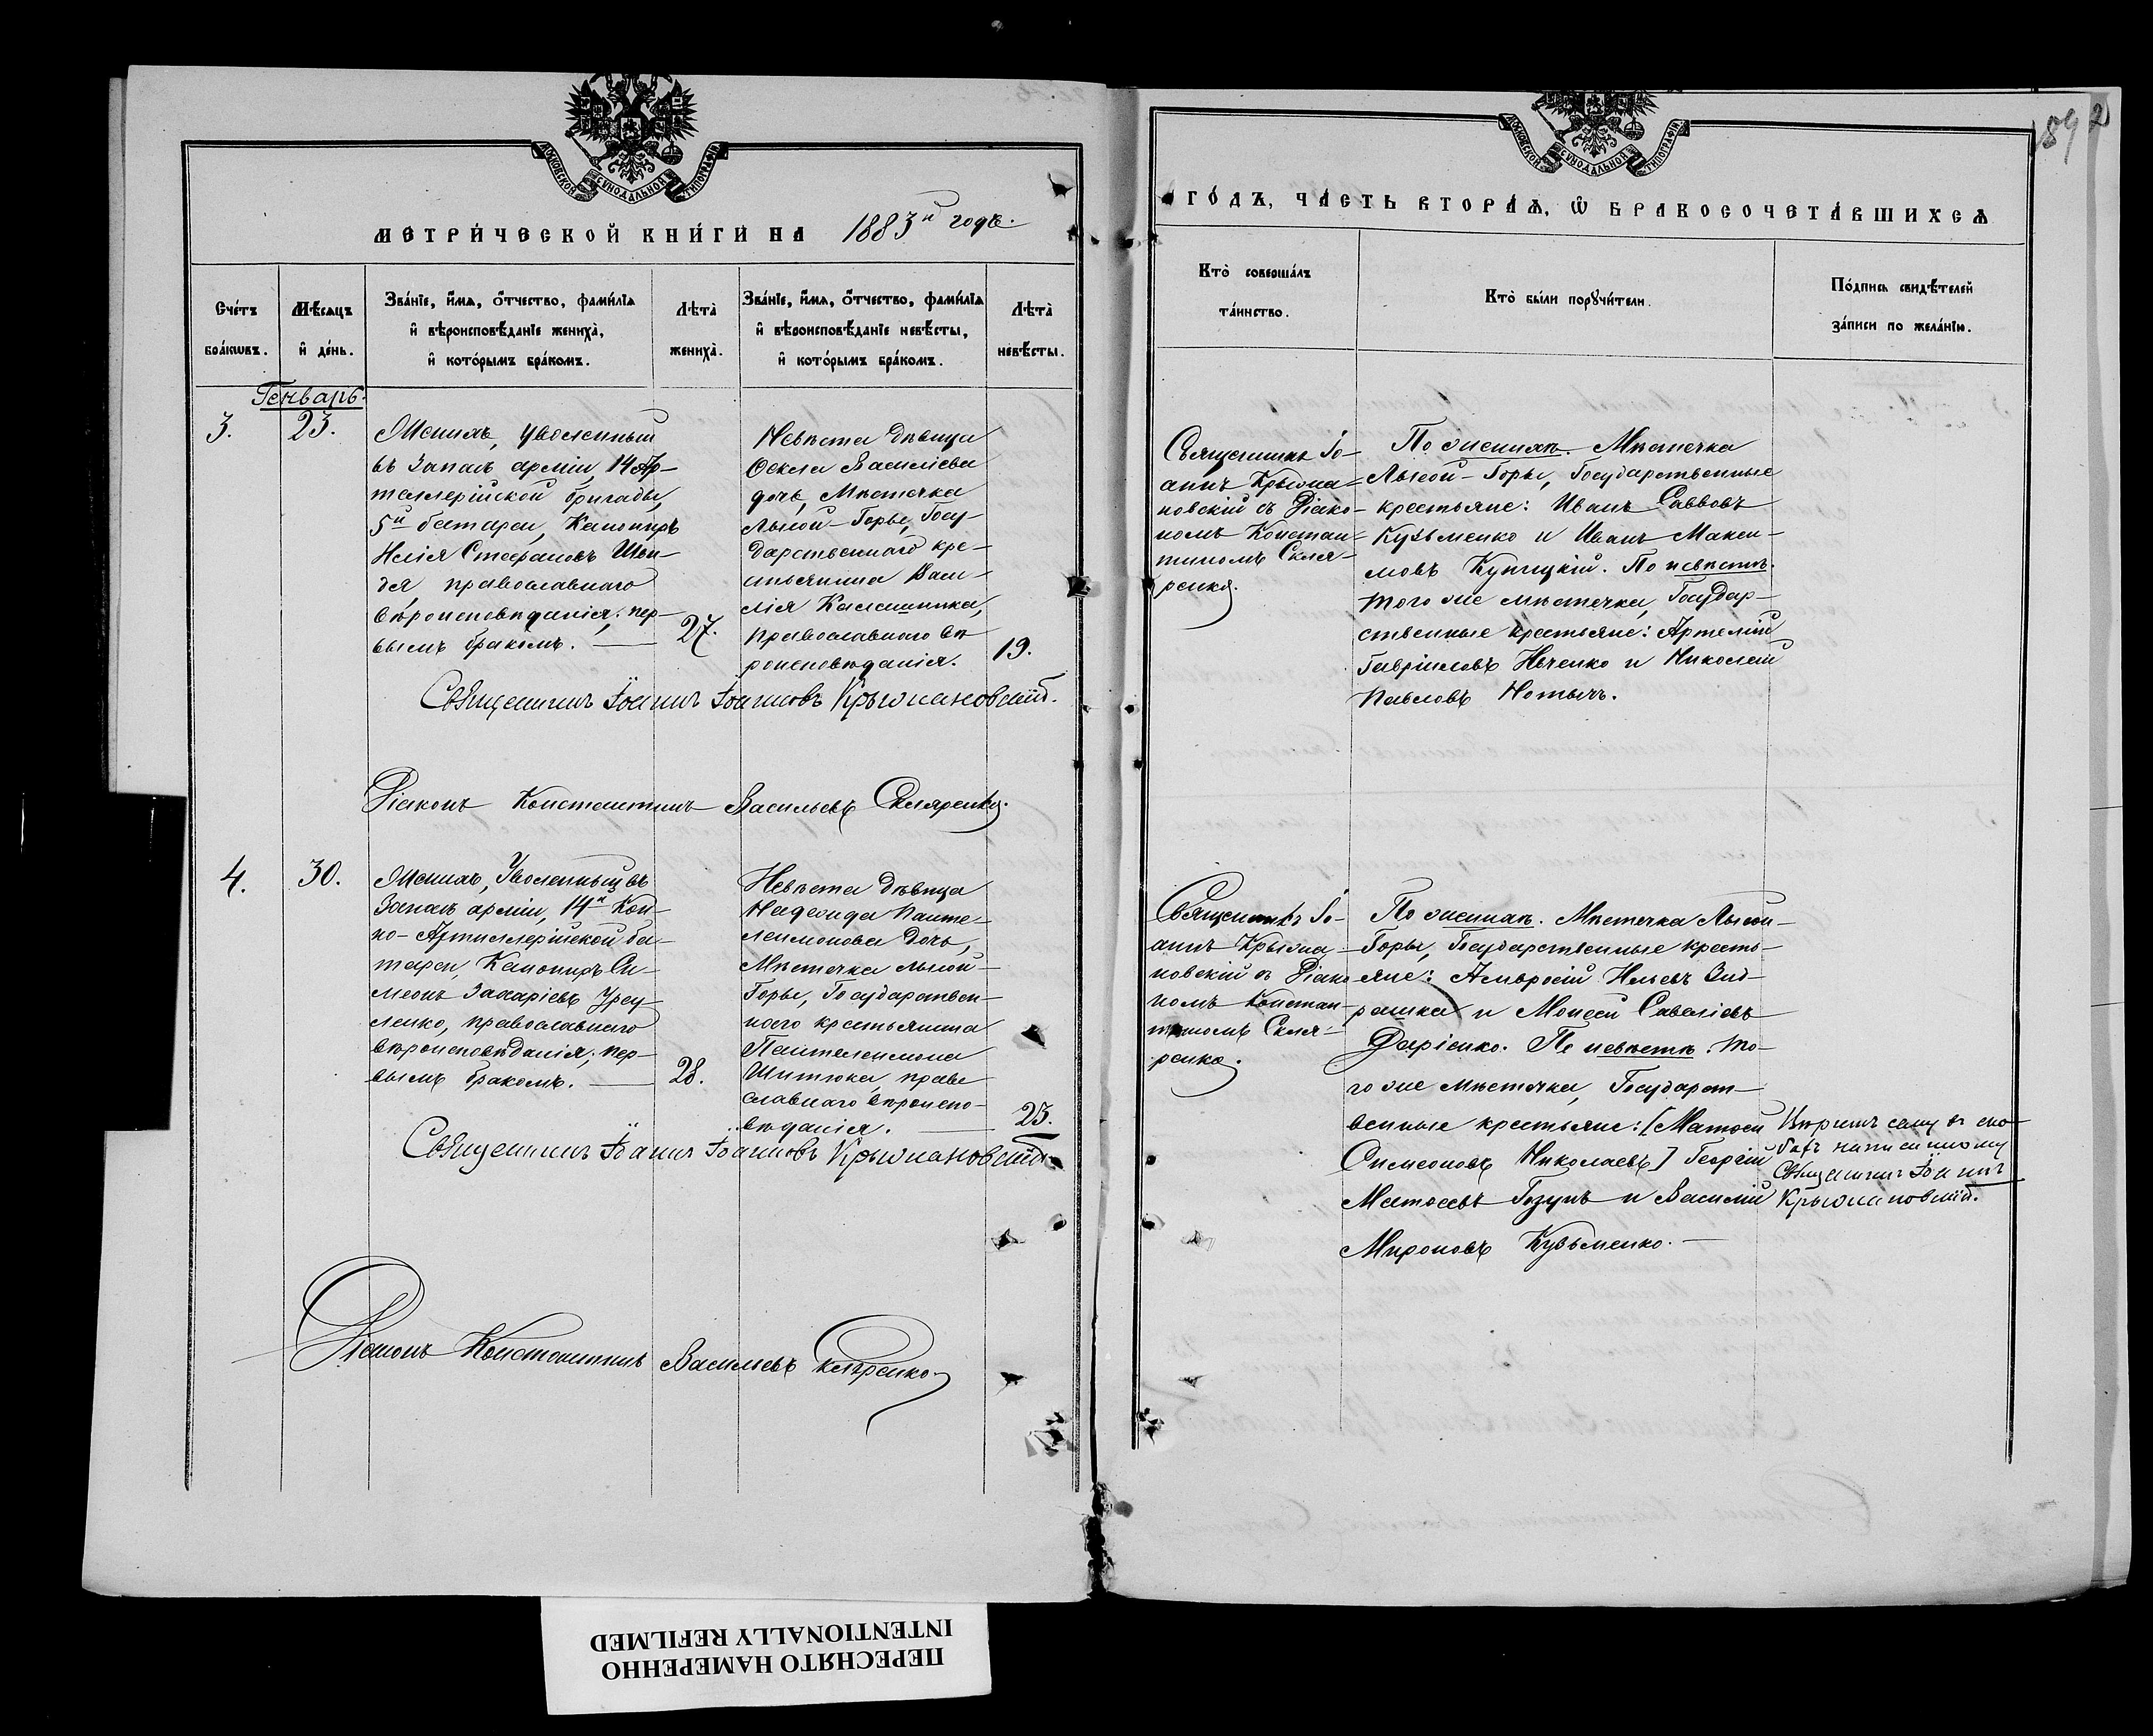 МОСКОВСКОЙ СѴНОДАЛЬНОЙ ТИПОГРАФІИ
МЕТРИ́ЧЕСКОЙ КНИ́ГИ НА 1883й годъ.
Сче́тъ бра́кѡвъ.
Мѣ́сяцъ и҆ де́нь.
Зва́нїе, и҆́мѧ, ѻ҆́тчество, фами́лїѧ
и҆ вѣроисповѣ́данїе жениха̀,
и҆ кото́рымъ бра́комъ.
Лѣта̀ жениха̀.
Зва́нїе, и҆́мѧ, ѻ҆́тчество, фами́лїѧ
и҆ вѣроисповѣ́данїе невѣ́сты,
и҆ кото́рымъ бра́комъ.
Лѣта̀ невѣ́сты.
Генварь.
3.
23.
Женихъ, Уволенный
въ Запасъ арміи, 14 Ар-
тиллерійской бригады,
5й батареи, Канониръ
Илія Стефановъ
православнаго
вѣроисповѣданія, пер-
вымъ бракомъ. —
27.
Невѣста дѣвица
Ѳекла Василіева
дочь, Мѣстечка
Лысой-Горы, Госу-
дарственнаго кре-
стьянина Васи-
лія Калашника,
православнаго вѣ-
роисповѣданія.
19.
Священникъ Іоаннъ Іоанновъ Крыжановскій.
Діаконъ Константинъ Васильевъ Скляренко.
4.
30.
Женихъ, Уволенный въ
Запасъ арміи, 14й Кон-
но-Артиллерійской ба-
тареи, Канониръ Си-
меонъ Захаріевъ Урсу-
ленко, православнаго
вѣроисповѣданія, пер-
вымъ бракомъ. —
28.
Невѣста дѣвица
Надежда Панте-
леимонова дочь,
Мѣстечка Лысой-
Горы, Государствен-
наго крестьянина
Пантелеимона
Шитюка, право
славнаго вѣроиспо-
вѣданія. —
23.
Священникъ Іоаннъ Іоанновъ Крыжановскій
Діаконъ Константинъ Васильевъ Скляренко
ГО́ДЪ, ЧА́СТЬ ВТОРА́Ѧ, Ѽ БРАКОСОЧЕТА́ВШИХСѦ
Кто̀ соверша́лъ
та́инство.
Кто̀ бы́ли порꙋчи́тели.
По́дпись свидѣ́телей
за́писи по жела́нїю.
Священникъ Іо-
аннъ Крыжа-
новскій съ Діако-
номъ Констан-
тиномъ Скля-
ренко.
По женихѣ. Мѣстечка
Лысой-Горы, Государственные
крестьяне: Иванъ Саввовъ
Кузьменко и Иванъ Макси-
мовъ Купицкій. По невѣстѣ.
того же мѣстечка, Государ-
ственные крестьяне: Артемій
Гавріиловъ Ивченко и Николай
Павловъ
Священникъ Іо-
аннъ Крыжа-
новскій съ Діако
номъ Констан-
тиномъ Скля-
ренко.
По женихѣ. Мѣстечка Лысой-
Горы, Государственные кресть-
яне: Амвросій Ильевъ Зиб-
рашка и Моисей Савеліевъ
Даріенко. По невѣстѣ. то-
го же мѣстечка, Государст-
венные крестьяне: [Матѳей
Симеоновъ Николаевъ] Георгій
Матѳеевъ Гозунъ и Василій
Мироновъ Кузьменко. —
въ ско-
бахъ написанному
Священникъ Іоаннъ
Крыжановскій.
ПЕРЕСНЯТО НАМЕРЕННО
INTENTIONALLY REFILMED